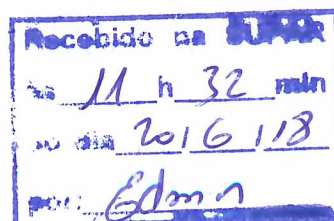 Recebido na SUPAR
às 11 h 32 min
no dia 20 / 6 / 18
por: